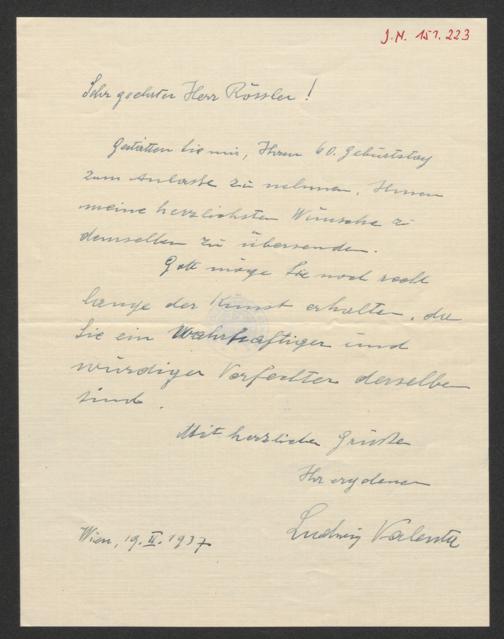 J.N. 151.223
Sehr geehrter Herr Rössler!
Gestatten Sie mir, Ihren 60. Geburtstag
zum Anlasse zu nehmen, Ihnen
meine herzlichsten Wünsche zu
demselben zu übersenden.
Gott möge Sie noch recht
lange der Kunst erhalten, da
Sie ein Wahrhaftiger und
würdiger Verfechter derselben
sind.
Mit herzlichen Grüßen
Ihr ergebener
Ludwig Valenta
Wien, 19. II. 1937